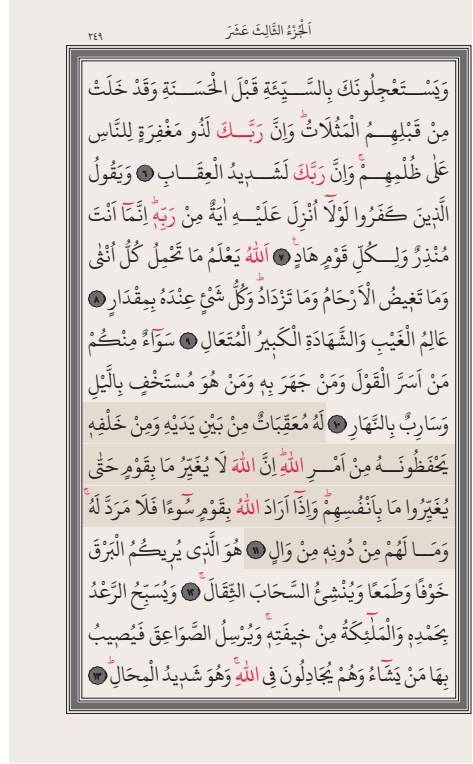 اَلْجُزْءُ الثَّالِثَ عَشَرَ
٢٤٩
وَيَسْتَعْجِلُونَكَ بِالسَّيِّئَةِ قَبْلَ الْحَسَنَةِ وَقَدْ خَلَتْ
مِنْ قَبْلِهِمُ الْمَثُلَاتُۜ وَاِنَّ رَبَّكَ لَذُو مَغْفِرَةٍ لِلنَّاسِ
عَلٰى ظُلْمِهِمْۚ وَاِنَّ رَبَّكَ لَشَدِيدُ الْعِقَابِ ٦ وَيَقُولُ
الَّذِينَ كَفَرُوا لَوْلَٓا اُنْزِلَ عَلَيْهِ اٰيَةٌ مِنْ رَبِّهٖۜ اِنَّمَٓا اَنْتَ
مُنْذِرٌ وَلِكُلِّ قَوْمٍ هَادٍۚ ٧ اَللّٰهُ يَعْلَمُ مَا تَحْمِلُ كُلُّ اُنْثٰى
وَمَا تَغٖيضُ الْاَرْحَامُ وَمَا تَزْدَادُۜ وَكُلُّ شَيْءٍ عِنْدَهُ بِمِقْدَارٍ ٨
عَالِمُ الْغَيْبِ وَالشَّهَادَةِ الْكَبٖيرُ الْمُتَعَالِ ٩ سَوَٓاءٌ مِنْكُمْ
مَنْ اَسَرَّ الْقَوْلَ وَمَنْ جَهَرَ بِهٖ وَمَنْ هُوَ مُسْتَخْفٍ بِالَّيْلِ
وَسَارِبٌ بِالنَّهَارِ ١٠ لَهُ مُعَقِّبَاتٌ مِنْ بَيْنِ يَدَيْهِ وَمِنْ خَلْفِهٖ
يَحْفَظُونَهُ مِنْ اَمْرِ اللّٰهِۜ اِنَّ اللّٰهَ لَا يُغَيِّرُ مَا بِقَوْمٍ حَتّٰى
يُغَيِّرُوا مَا بِاَنْفُسِهِمْۜ وَاِذَٓا اَرَادَ اللّٰهُ بِقَوْمٍ سُٓوءًا فَلَا مَرَدَّ لَهُۚ
وَمَا لَهُمْ مِنْ دُونِهٖ مِنْ وَالٍ ١١ هُوَ الَّذٖى يُرٖيكُمُ الْبَرْقَ
خَوْفًا وَطَمَعًا وَيُنْشِئُ السَّحَابَ الثِّقَالَۚ ١٢ وَيُسَبِّحُ الرَّعْدُ
بِحَمْدِهٖ وَالْمَلٰٓئِكَةُ مِنْ خٖيفَتِهٖۚ وَيُرْسِلُ الصَّوَاعِقَ فَيُصٖيبُ
بِهَا مَنْ يَشَٓاءُ وَهُمْ يُجَادِلُونَ فِى اللّٰهِۚ وَهُوَ شَدٖيدُ الْمِحَالِۜ ١٣